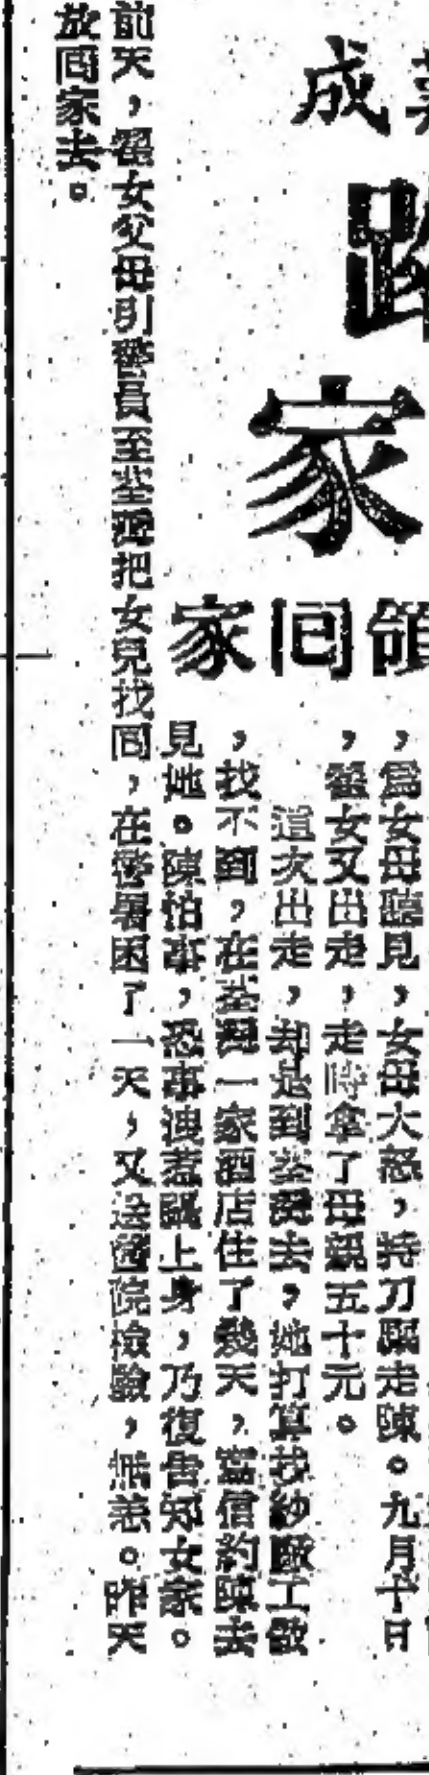 成
家
領回家
，為女母聽見，女母大怒，持刀驅走陳。九月十日
，翟女又出走，走時拿了母親五十元。
這次出走，却是到荃灣去，她打算找紗廠工做
，找不到，在荃灣一家酒店住了幾天，寫信約陳去
見她。陳怕事，恐事洩惹禍上身，乃復告知女家。
前天，翟女父母引警員至荃灣把女兒找回，在警署困了一天，又送醫院檢驗，無恙。昨天
放回家去。